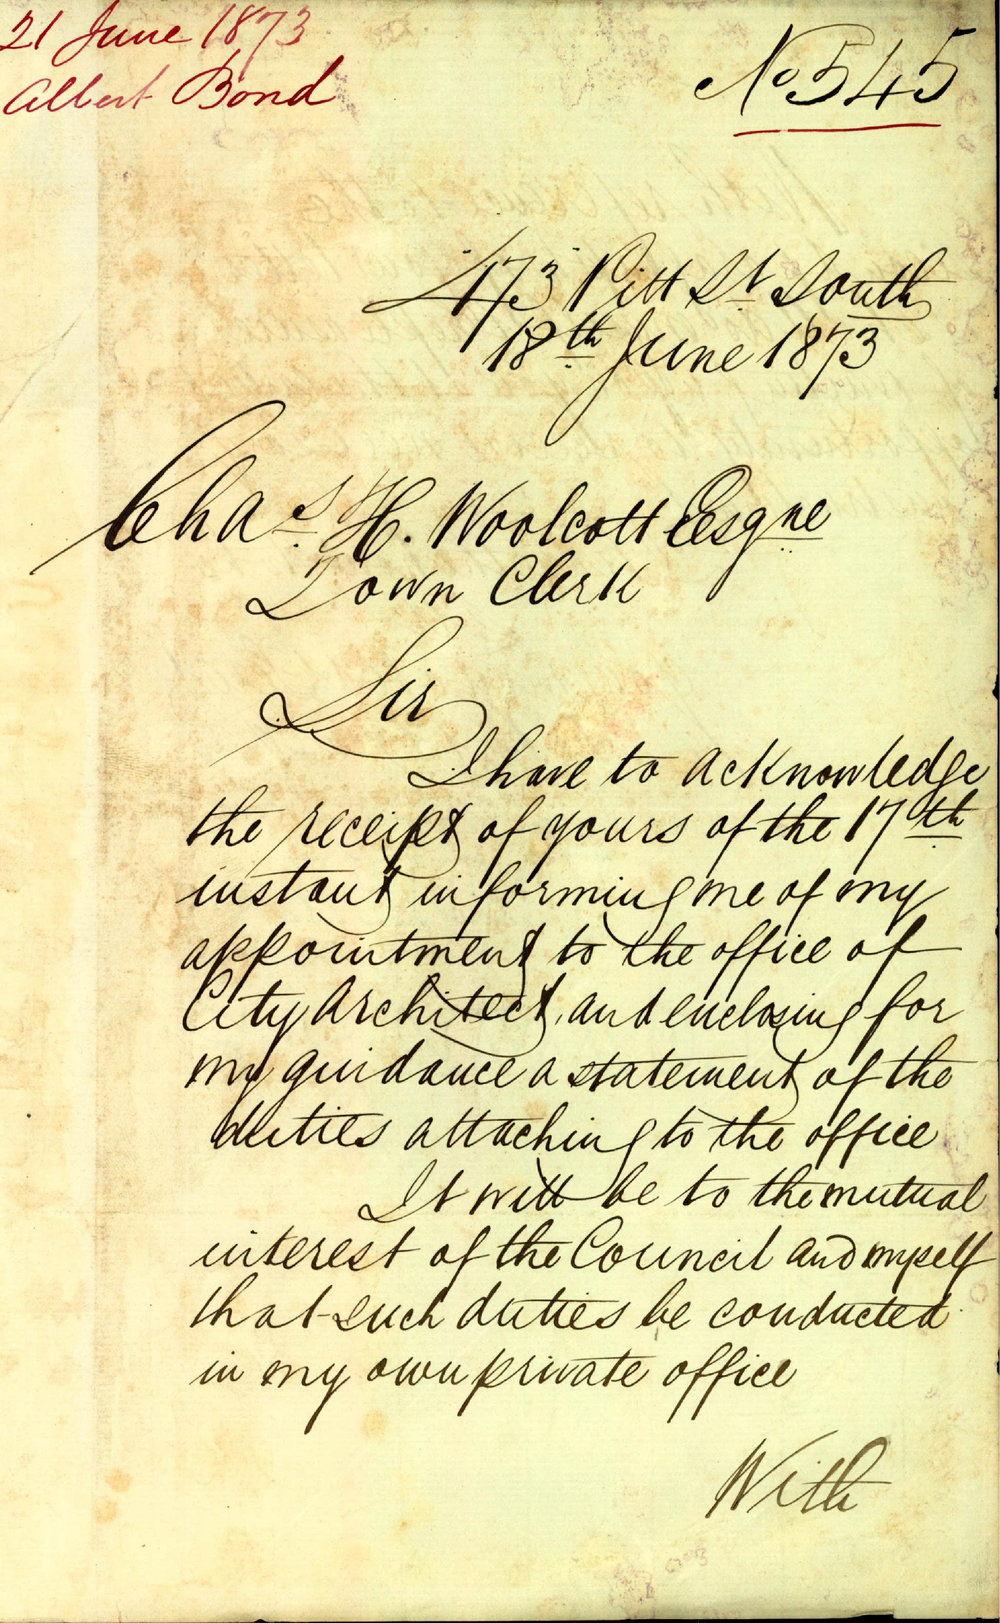 21 June 1873
Albert Bond
No 545
473 Pitt St South
18th June 1873
Chas H. Woolcott Esqre
Town Clerk
Sir
I have to acknowledge
the receipt of yours of the 17th
instant informing me of my
appointment to the office of
City Architect, and enclosing for
my guidance a statement of the
duties attaching to the office
It will be to the mutual
interest of the Council and myself
that such duties be conducted
in my own private office
With